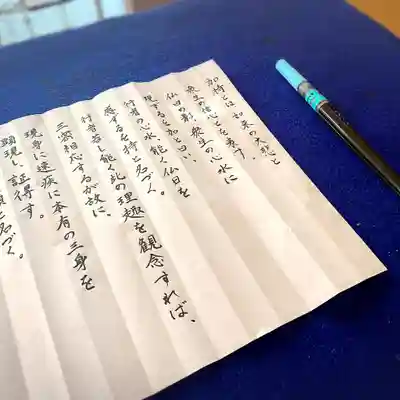 加持とは、如来の大悲と
衆生の信心とを表す。
仏日の影、衆生の心水に
現ずるを加と曰い、
行者の心水、能く仏日を
感ずるを持と名づく。
行者若し能く此の理趣を観念すれば、
三密相応するが故に、
現身に速疾に本有の三身を
顕現し、証得す。
名づく。